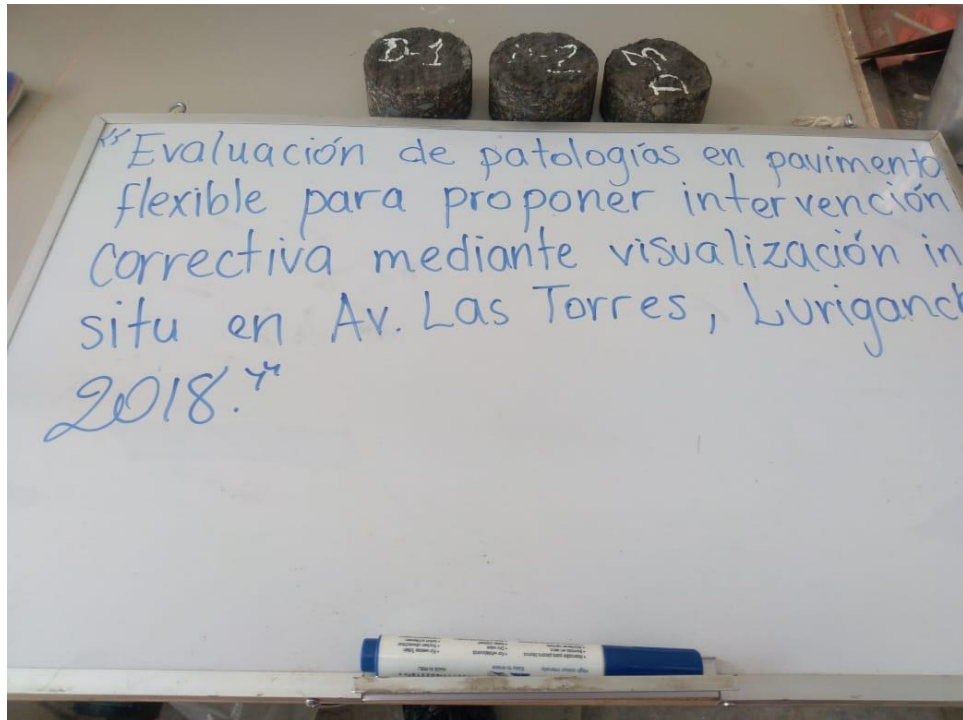 D-1
-2
D
"Evaluación de patologías en pavimento
flexible para proponer intervención
correctiva mediante visualización in
situ en Av. Las Torres, Luriganch
2018."